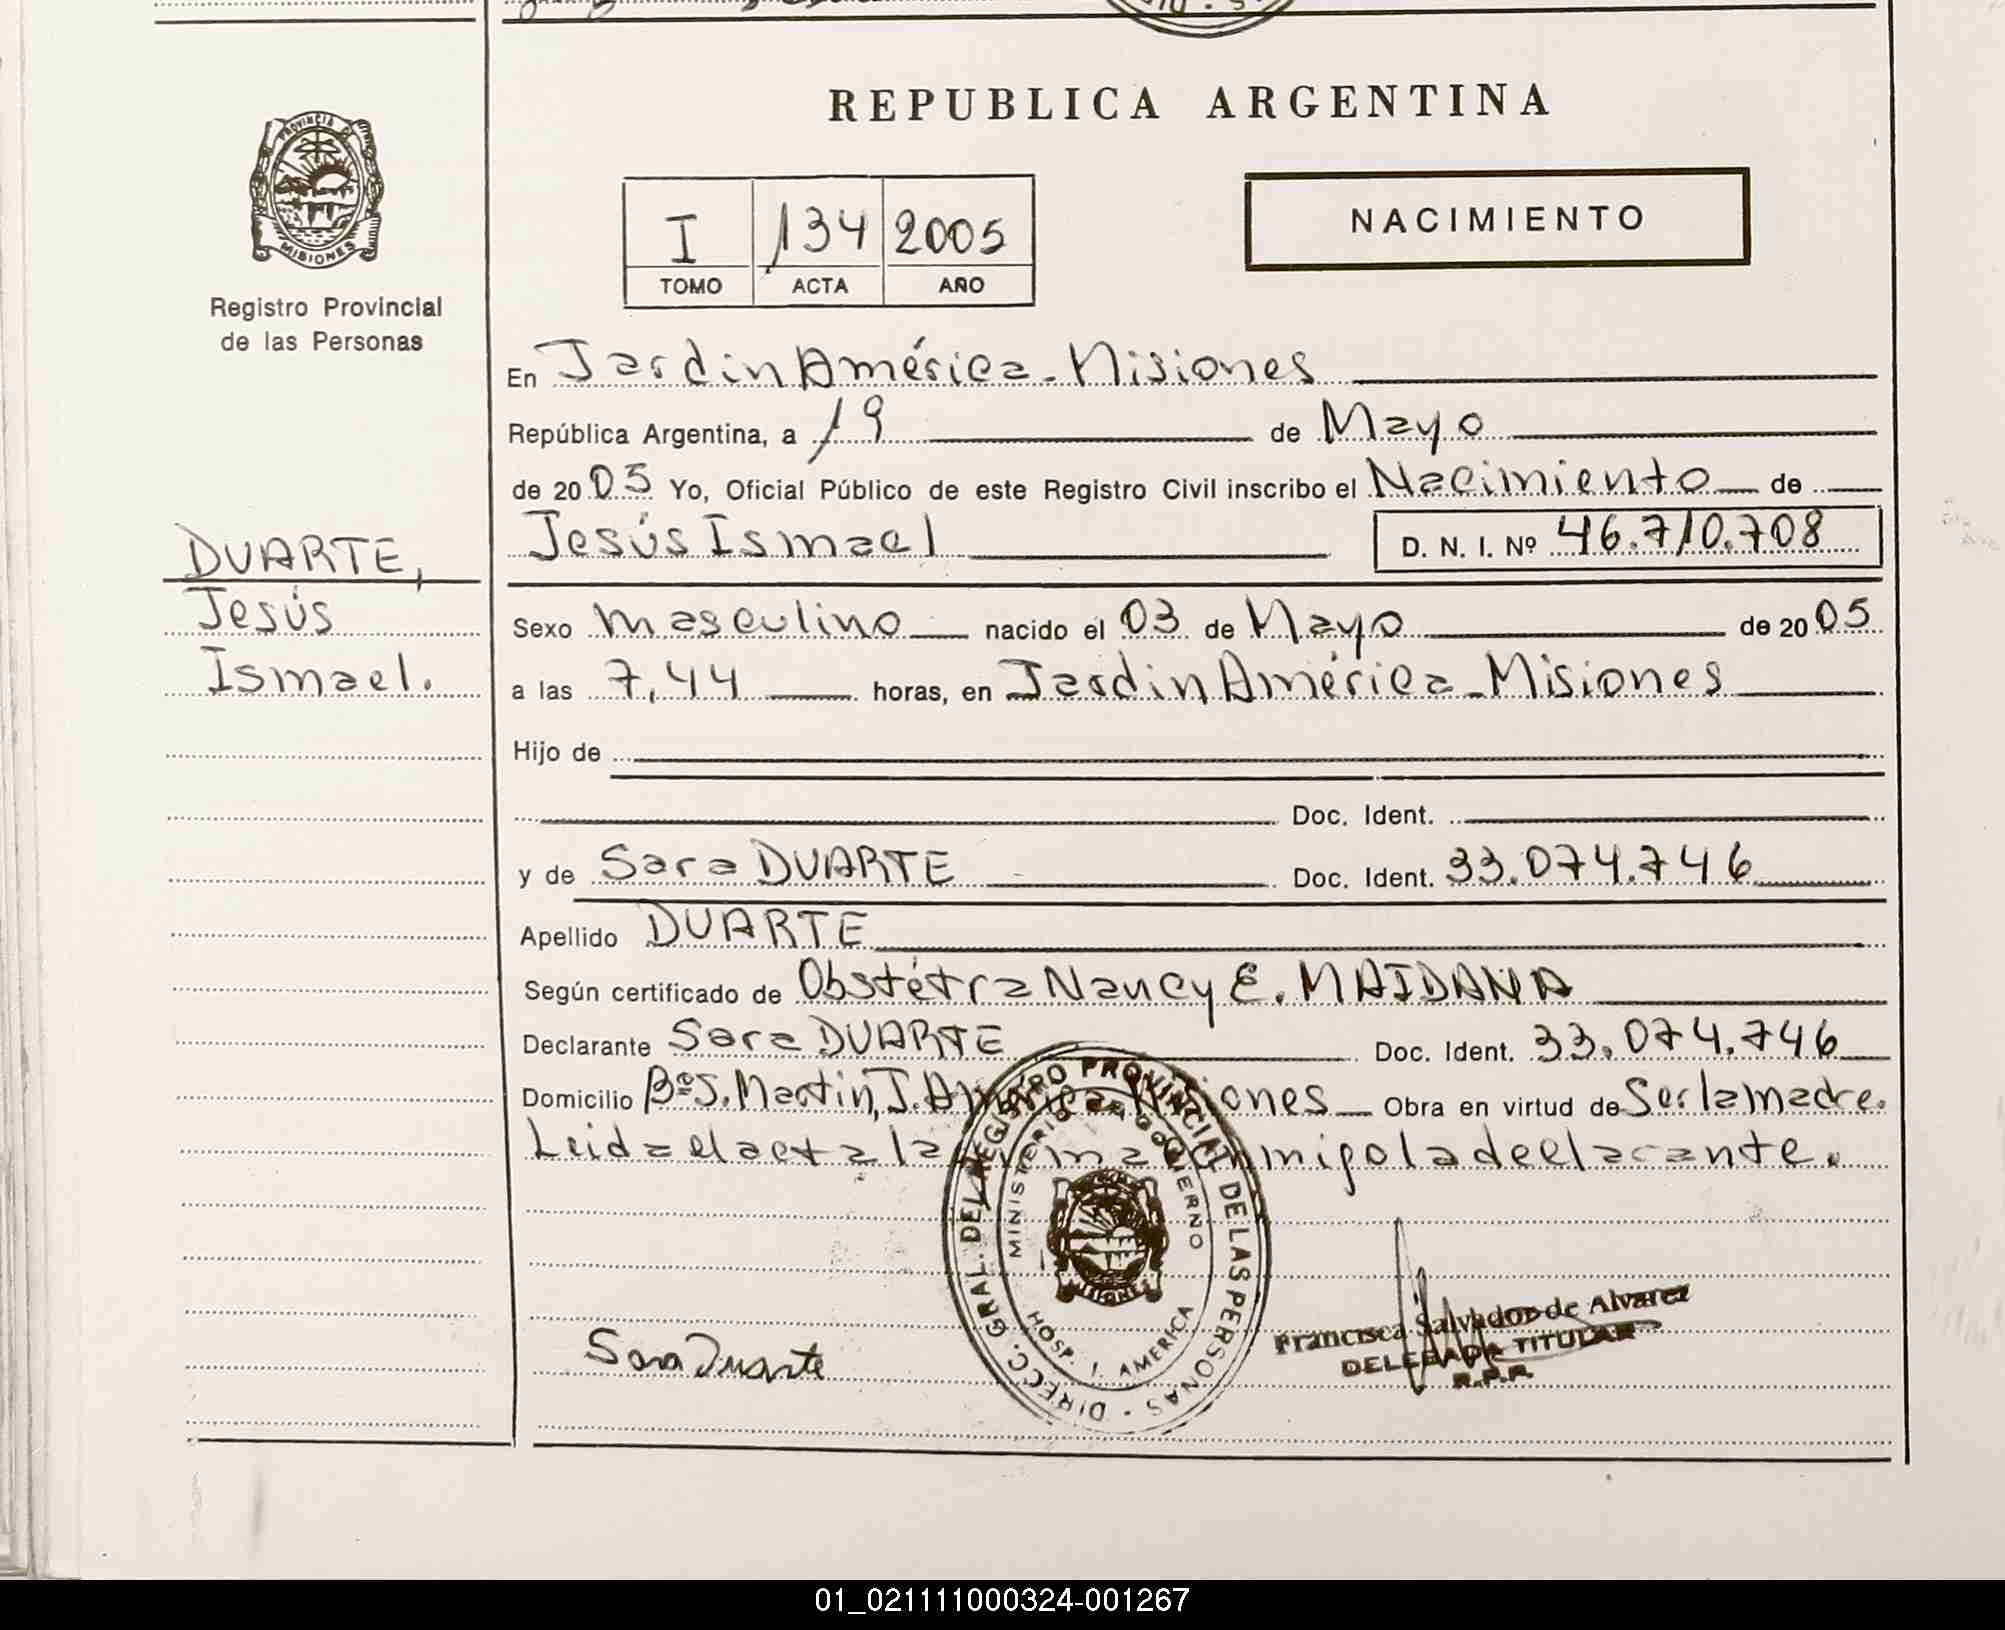 REPUBLICA ARGENTINA
PROVINCIA DE
MISIONES
Registro Provincial
de las Personas
I 134 2005
TOMO ACTA AÑO
NACIMIENTO
En Jardin América - Misiones
República Argentina, a 19 de Mayo
de 20 05 Yo, Oficial Público de este Registro Civil inscribo el Nacimiento de
Jesús Ismael D. N. I. Nº 46.710.708
DUARTE,
Jesús
Ismael.
Sexo masculino nacido el 03 de Mayo de 20 05
a las 7,44 horas, en Jardin América - Misiones
Hijo de
Doc. Ident.
y de Sara DUARTE Doc. Ident. 33.074.746
Apellido DUARTE
Según certificado de Obstétra Nancy E. MAIDANA
Declarante Sara DUARTE Doc. Ident. 33.074.746
Domicilio Bº S. Martin, J. América Misiones Obra en virtud de Ser la madre.
Leida el acta la firma conmigo la declarante.
DIRECC. GRAL. DEL REGISTRO PROVINCIAL DE LAS PERSONAS
MINISTERIO DE GOBIERNO
MISIONES
HOSP. J. AMERICA
Sara Duarte
Francisca Salvador de Alvarez
DELEGADA TITULAR
R.P.P.
01_021111000324-001267